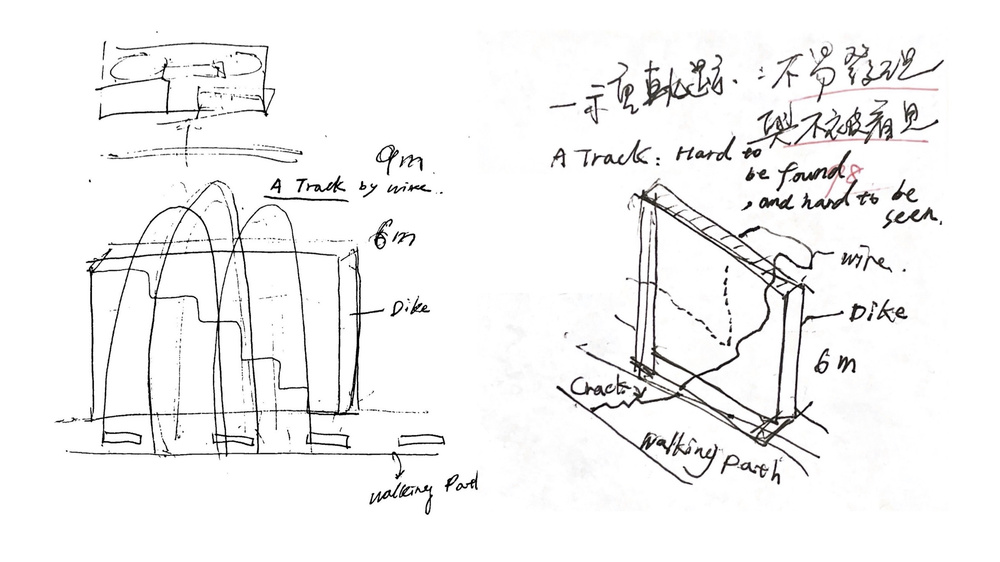 9m
A Track by wire.
6m
Dike
walking Path
不易發現
與不被看見
A Track: Hard to
be found
98
, and hard to be
seen.
wire.
Dike
6m
Crack
Walking Path